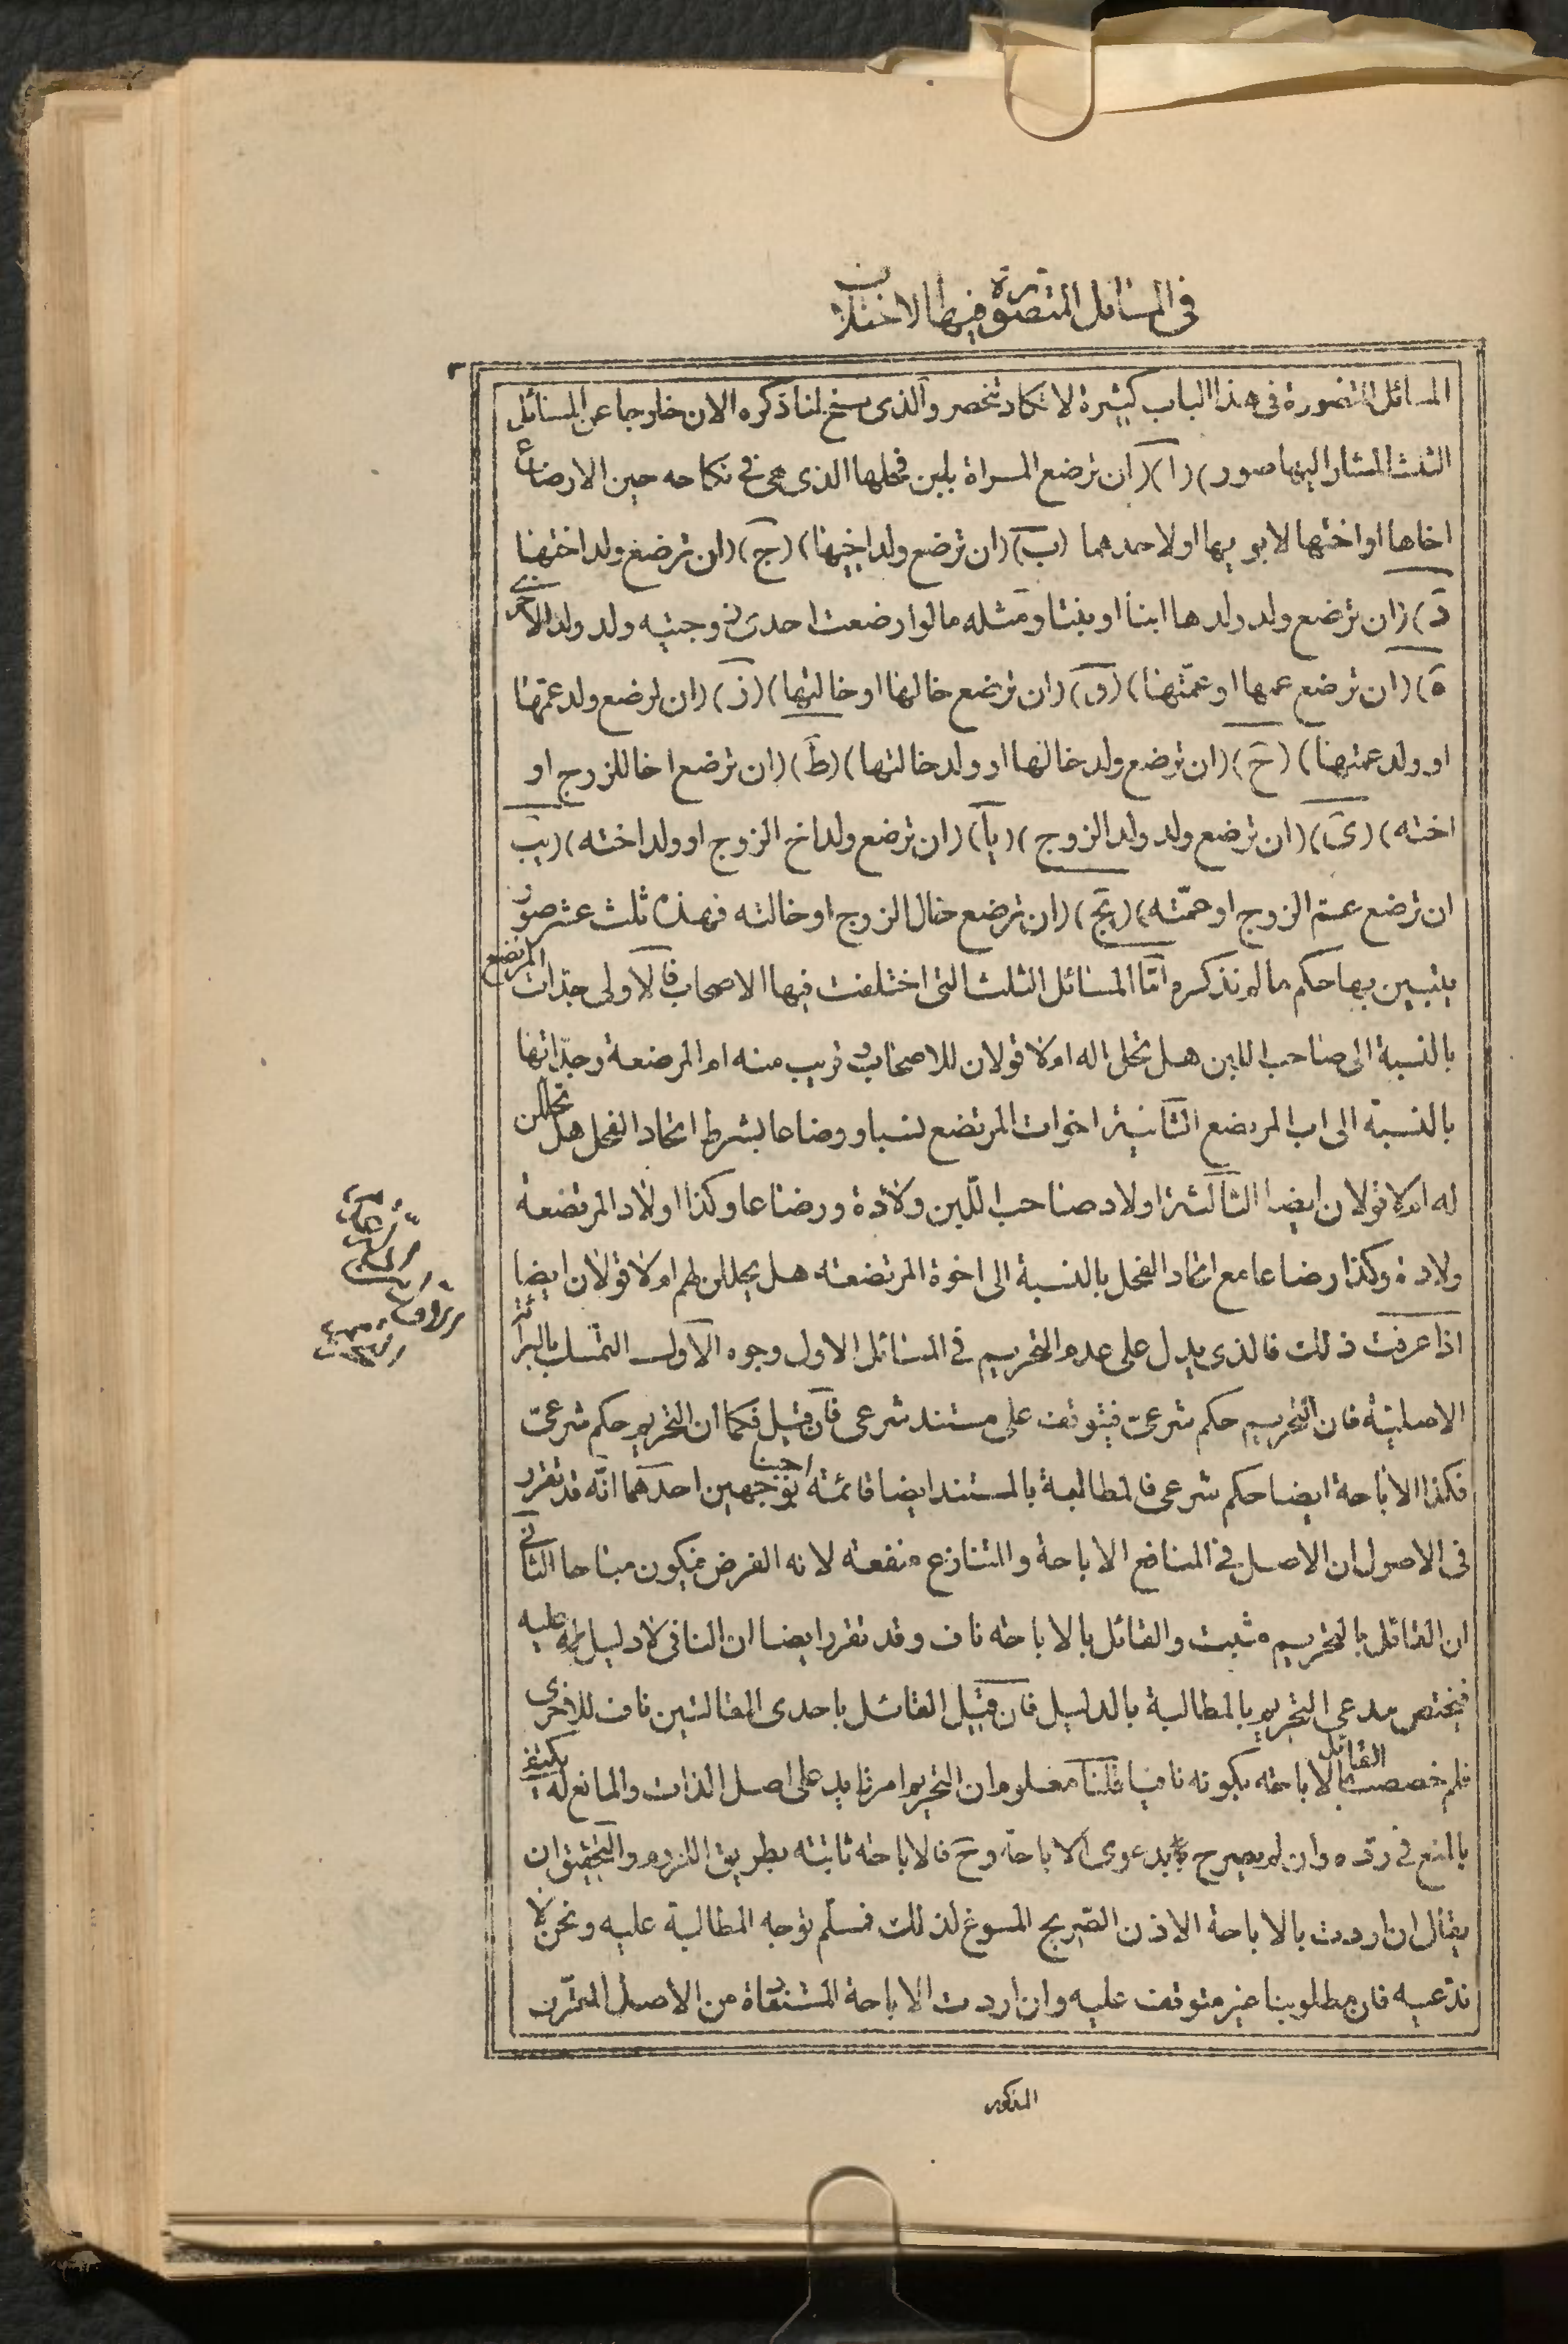 فى المسائل المتصورة فيها الاختلاف
المسائل المتصورة فى هذا الباب كثيرة لا تكاد تنحصر والذى سنح لنا ذكره الان خارجا عن المسائل
الثلث المشار اليها صور) (ا) (ان ترضع المراة بلبن فحلها الذى هى فى نكاحه حين الارضاع
اخاها او اختها لابويها او لاحدهما (ب) (ان ترضع ولد اخيها) (ج) (ان ترضع ولد اختها
د) (ان ترضع ولد ولدها ابنا او بنتا ومثله ما لو ارضعت احدى زوجتيه ولد ولد الاخرى
ه) (ان ترضع عمها او عمتها) (و) (ان ترضع خالها او خالتها) (ز) (ان ترضع ولد عمها
او ولد عمتها) (ح) (ان ترضع ولد خالها او ولد خالتها) (ط) (ان ترضع اخا للزوج او
اخته) (ى) (ان ترضع ولد ولد الزوج) (يا) (ان ترضع ولد اخ الزوج او ولد اخته) (يب
ان ترضع عم الزوج او عمته) (يج) (ان ترضع خال الزوج او خالته فهذه ثلث عشر صور
يتبين بها حكم ما لم نذكره امّا المسائل الثلث التى اختلفت فيها الاصحاب فالاولى جدّات المرتضع
بالنسبة الى صاحب اللبن هل تحلى اله ام لا قولان للاصحاب و قريب منه ام المرضعة وجدّاتها
بالنسبة الى اب المرتضع الثانية اخوات المرتضع نسبا ورضاعا بشرط اتحاد الفحل هل تحللن
له ام لا قولان ايضا الثالثة اولاد صاحب اللّبن ولادة ورضاعا وكذا اولاد المرتضعة
ولادة وكذا رضاعا مع اتحاد الفحل بالنسبة الى اخوة المرتضعة هل يحللن لهم ام لا قولان ايضا
اذا عرفت ذلك فالذى يدل على عدم التحريم فى المسائل الاول وجوه الاول التمسك بالبرائة
الاصلية فان التحريم حكم شرعىّ فيتوقف على مستند شرعى فان قيل فكما ان التحريم حكم شرعىّ
فكذا الاباحة ايضا حكم شرعى فالمطالبة بالمستند ايضا قائمة اجبنا بوجهين احدهما انّه قد تقرر
فى الاصول ان الاصل فى المنافع الاباحة والمتنازع منفعة لانه الفرض فيكون مباحا الثانى
ان القائل بالتحريم مثبت والقائل بالاباحة ناف وقد تقرر ايضا ان النافى لا دليل عليه
فيختص مدعى التحريم بالمطالبة بالدليل فان قيل القائل باحدى المقالتين ناف للاخرى
فلم خصصت القائل بالاباحة بكونه نافيا قلنا معلوم ان التحريم امر زايد على اصل الذات والمانع له يكتفى
بالمنع فى ردّه وان لم يصرح بدعوى الاباحة وح فالاباحة ثابتة بطريق اللزوم والتحقيق ان
يقال ان اردت بالاباحة الاذن الصّريح المسوغ لذلك فمسلّم توجه المطالبة عليه ونحن لا
ندّعيه فان مطلوبنا غير متوقف عليه وان اردت الاباحة المستفادة من الاصل المقرر
المذكور